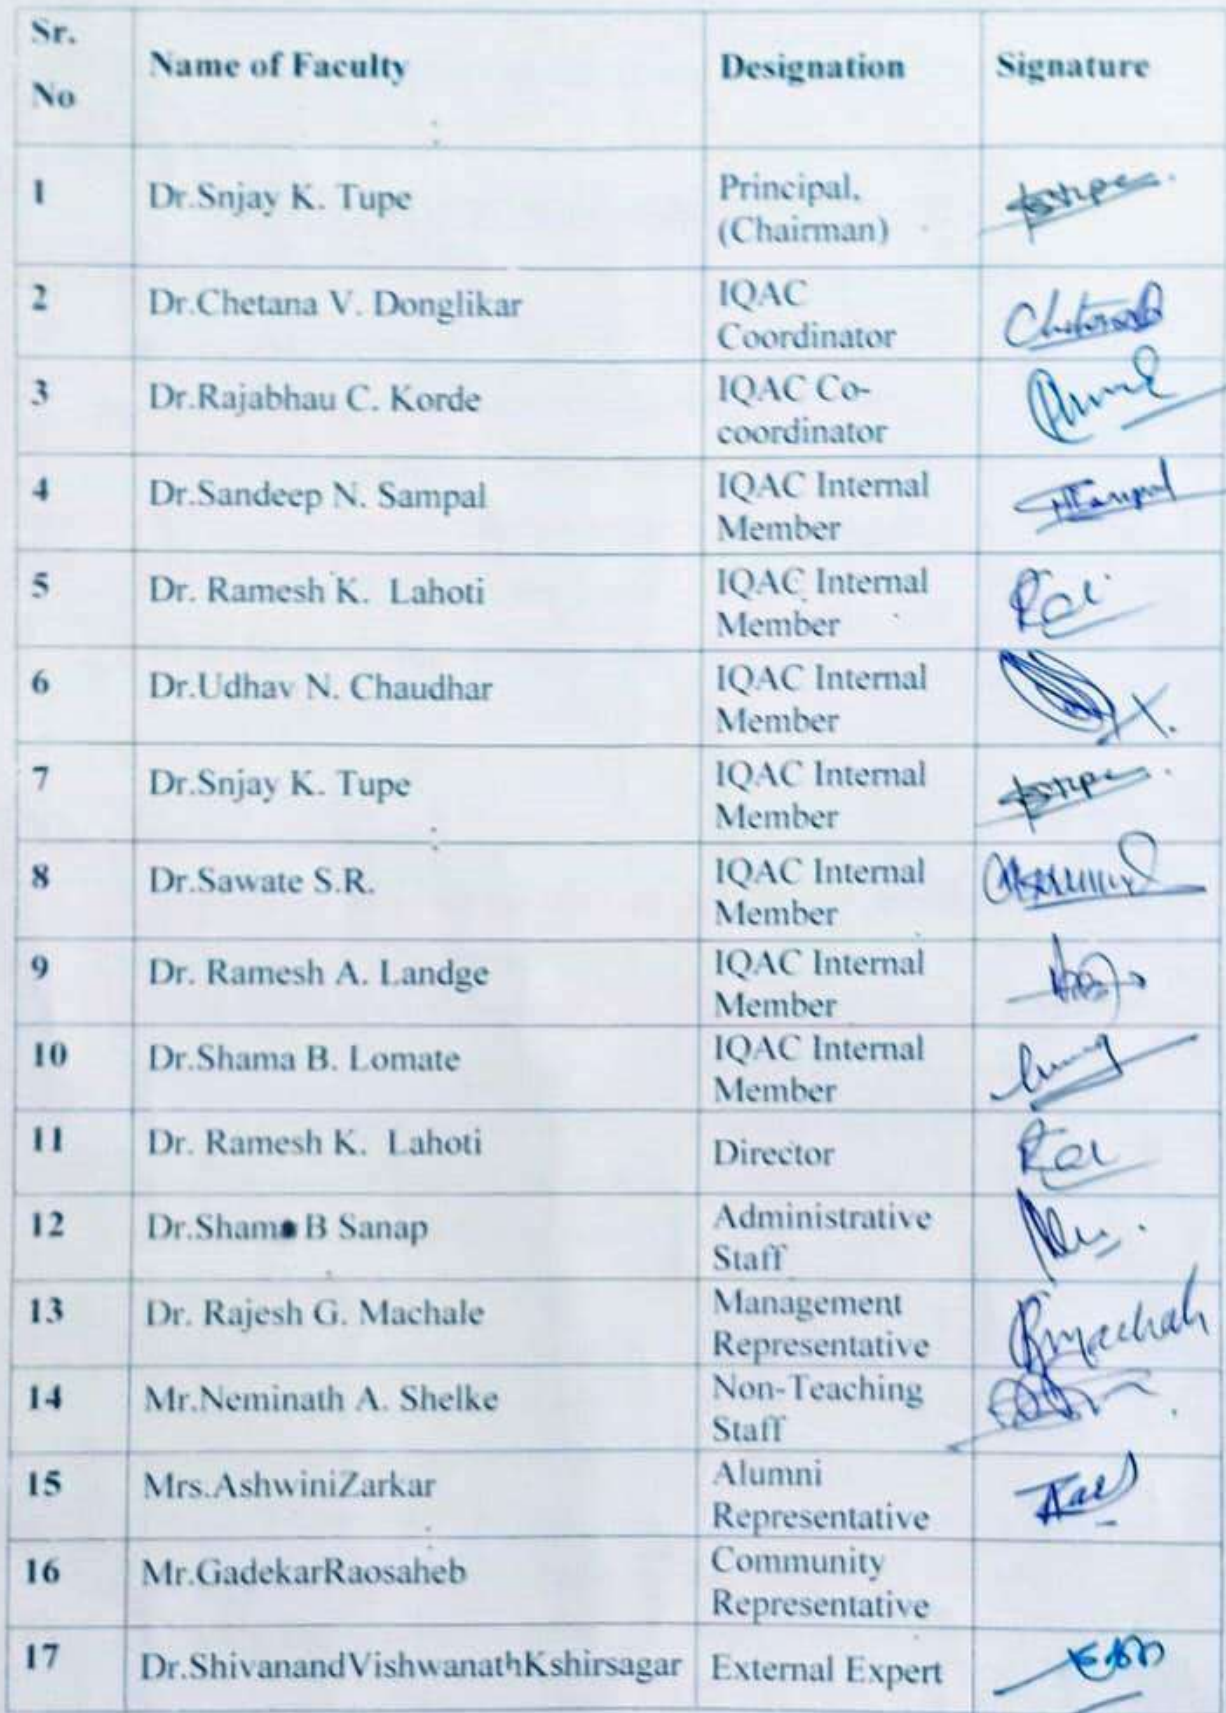 Sr.
No
Name of Faculty
Designation
Signature
1
Dr.Snjay K. Tupe
Principal,
(Chairman)
2
Dr.Chetana V. Donglikar
IQAC
Coordinator
3
Dr.Rajabhau C. Korde
IQAC Co-
coordinator
4
Dr.Sandeep N. Sampal
IQAC Internal
Member
5
Dr. Ramesh K. Lahoti
IQAC Internal
Member
6
Dr.Udhav N. Chaudhar
IQAC Internal
Member
7
Dr.Snjay K. Tupe
IQAC Internal
Member
8
Dr.Sawate S.R.
IQAC Internal
Member
9
Dr. Ramesh A. Landge
IQAC Internal
Member
10
Dr.Shama B. Lomate
IQAC Internal
Member
11
Dr. Ramesh K. Lahoti
Director
12
Dr.Shama B Sanap
Administrative
Staff
13
Dr. Rajesh G. Machale
Management
Representative
14
Mr.Neminath A. Shelke
Non-Teaching
Staff
15
Mrs.AshwiniZarkar
Alumni
Representative
16
Mr.GadekarRaosaheb
Community
Representative
17
Dr.ShivanandVishwanathKshirsagar
External Expert